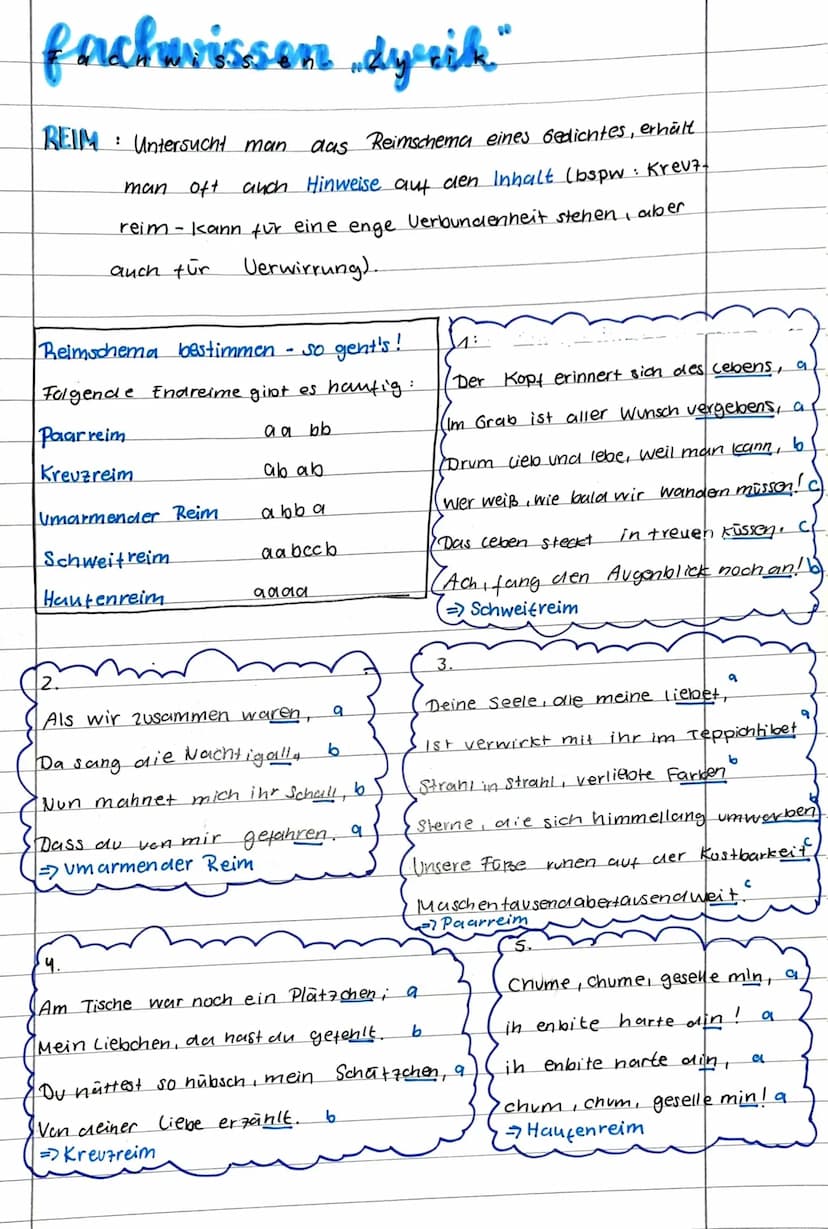 Fachwissen „Lyrik“
REIM : Untersucht man das Reimschema eines Gedichtes, erhält
man oft auch Hinweise auf den Inhalt (bspw: Kreuz-
reim - kann für eine enge Verbundenheit stehen, aber
auch für Verwirrung).
Reimschema bestimmen - so geht's!
Folgende Endreime gibt es häufig:
Paarreim aa bb
Kreuzreim ab ab
Umarmender Reim abb a
Schweifreim aabccb
Haufenreim aaaa
1:
Der Kopf erinnert sich des Lebens, a
Im Grab ist aller Wunsch vergebens, a
Drum lieb und lebe, weil man kann, b
Wer weiß, wie bald wir wandern müssen! c
Das Leben steckt in treuen Küssen. c
Ach, fang den Augenblick noch an! b
=> Schweifreim
2.
Als wir zusammen waren, a
Da sang die Nachtigall, b
Nun mahnet mich ihr Schall, b
Dass du von mir gefahren. a
=> Umarmender Reim
3.
Deine Seele, die meine liebet, a
Ist verwirkt mit ihr im Teppichtibet a
Strahl in Strahl, verliebte Farben b
Sterne, die sich himmellang umwarben b
Unsere Füße ruhen auf der Kostbarkeit c
Maschentausendabertausendweit. c
=> Paarreim
4.
Am Tische war noch ein Plätzchen; a
Mein Liebchen, da hast du gefehlt. b
Du hättest so hübsch, mein Schätzchen, a
Von deiner Liebe erzählt. b
=> Kreuzreim
5.
Chume, chume, geselle min, a
ih enbite harte din! a
ih enbite harte din, a
chum, chum, geselle min! a
=> Haufenreim